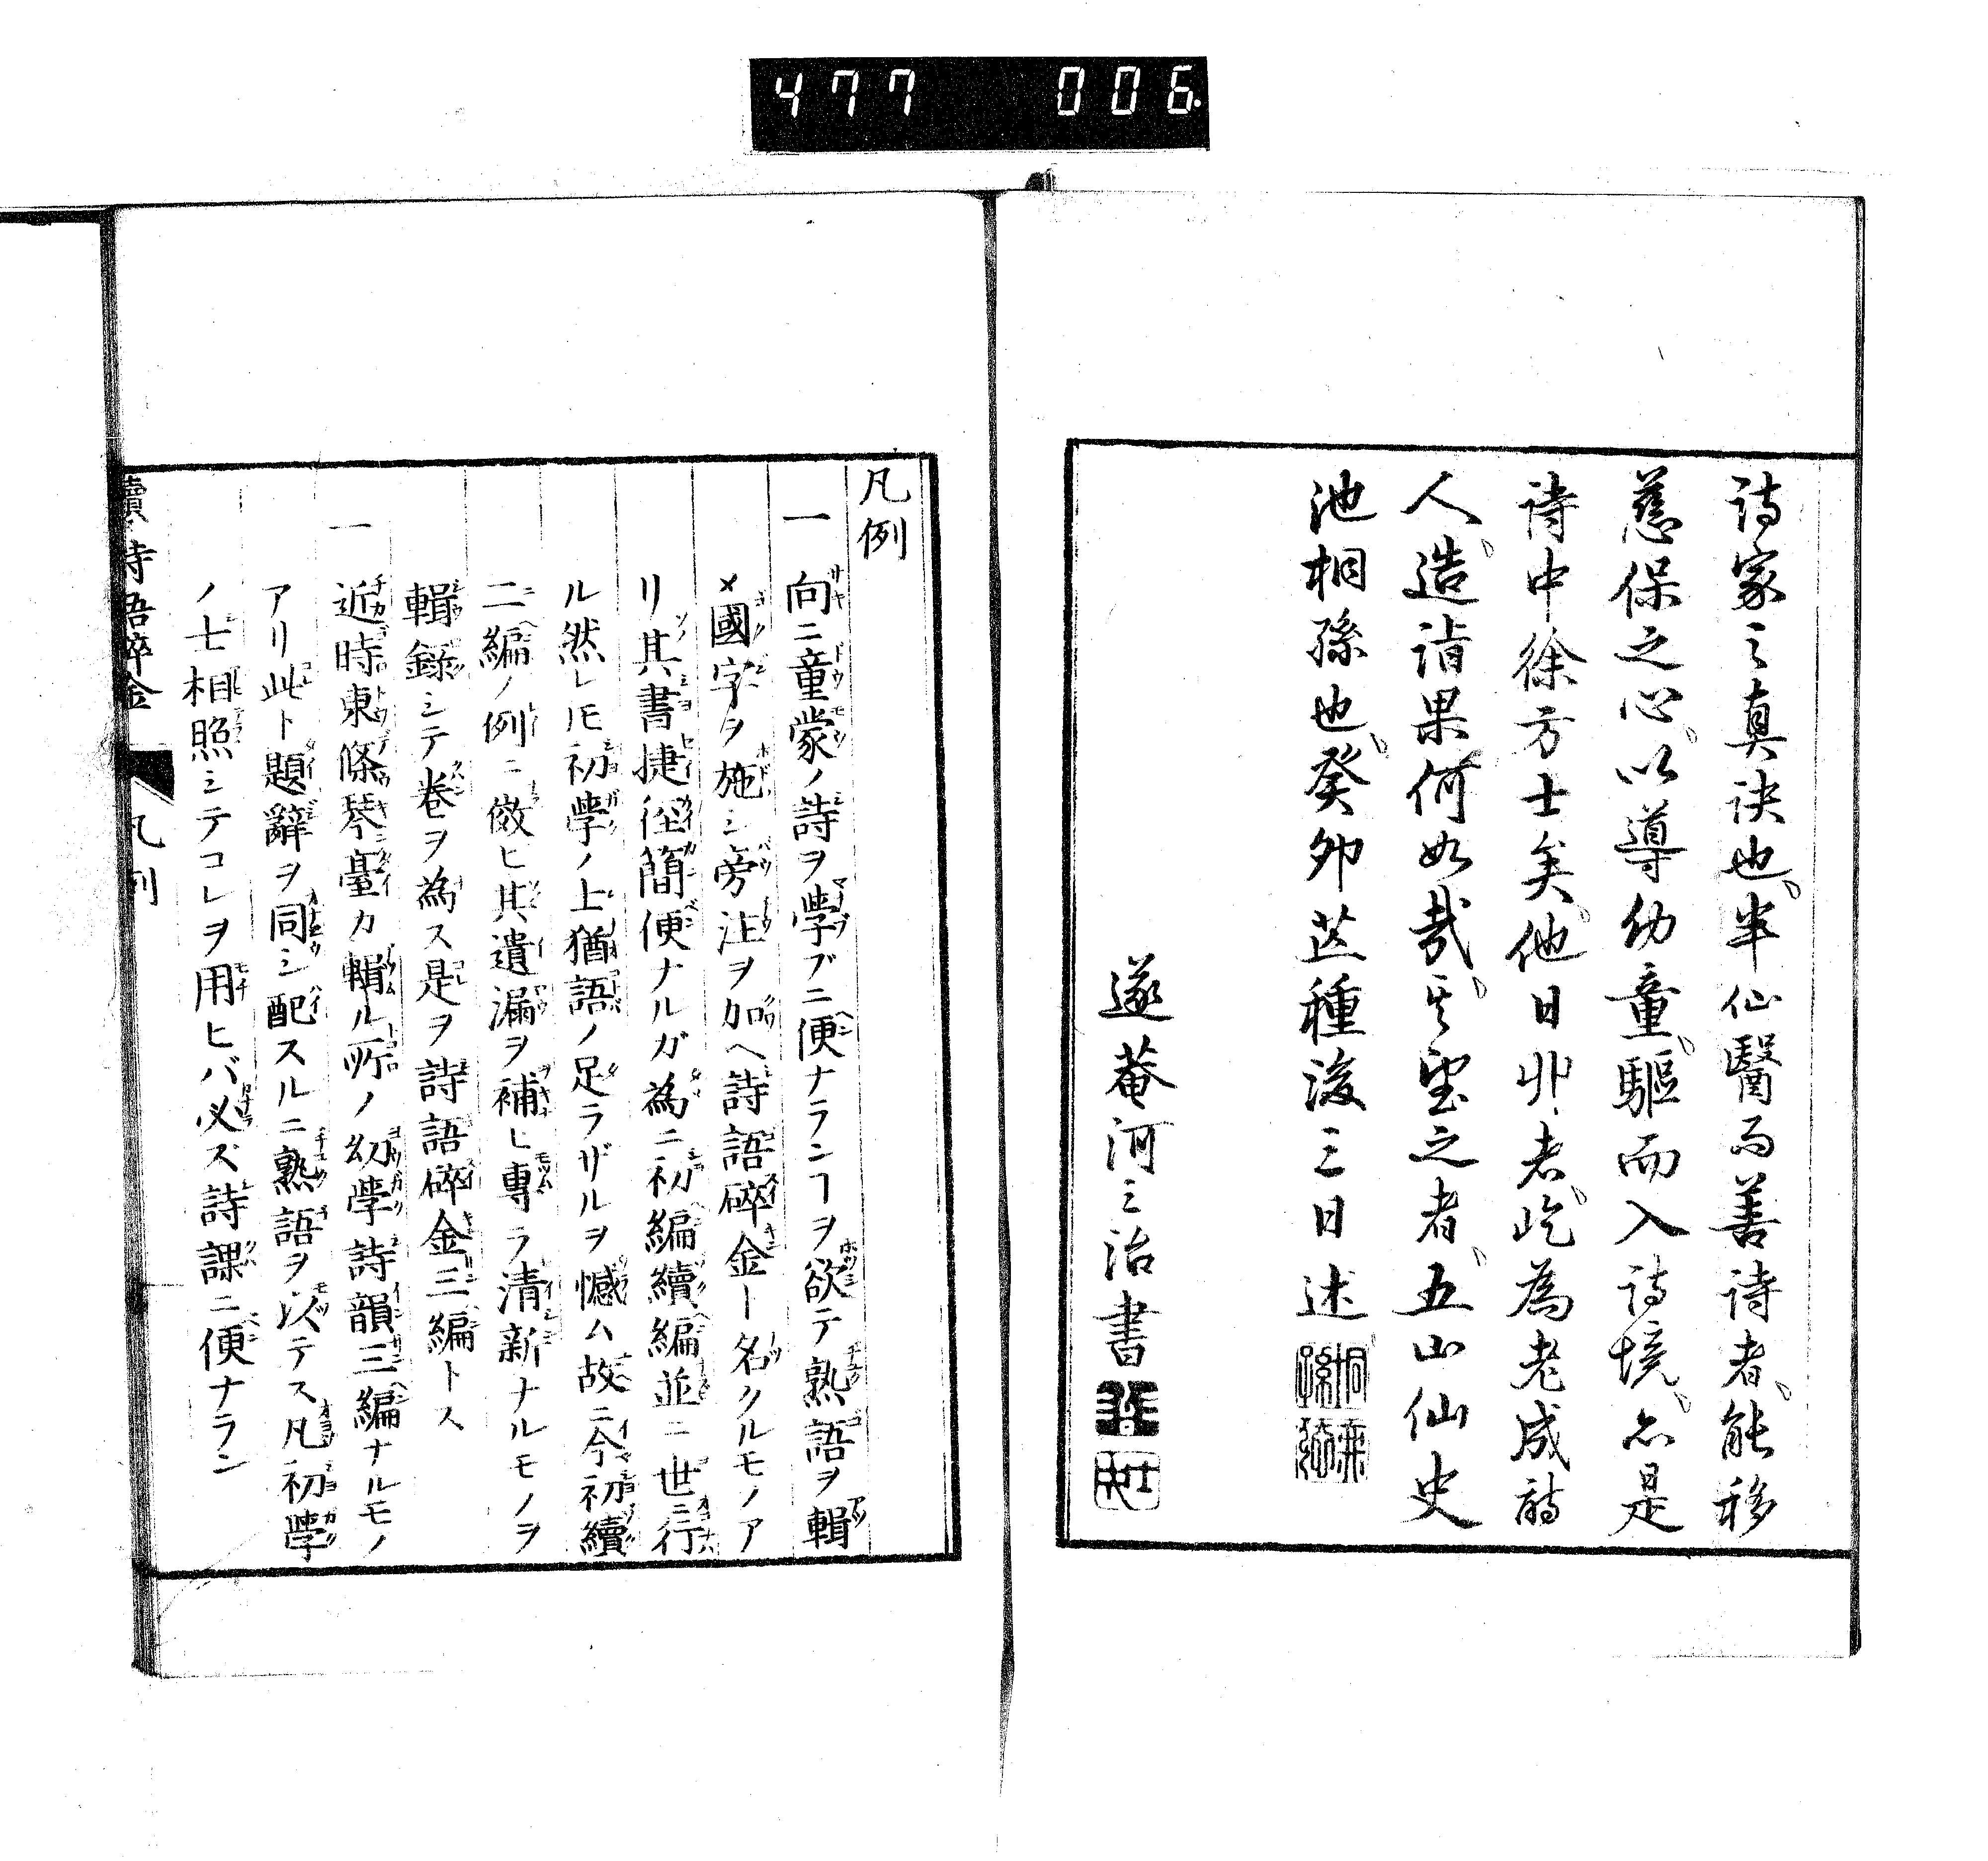 477 006
詩家之真訣也半仙醫而善詩者能移
慈保之心以導幼童驅而入詩境亦是
詩中徐方士矣他日丱者屹為老成詩
人造詣果何如哉其望之者五山仙史
池桐孫也癸卯芒種後三日述
遂菴河三治書
凡例
一向ニ童蒙ノ詩ヲ學ブニ便ナランヿヲ欲テ熟語ヲ輯
メ國字ヲ施シ旁注ヲ加ヘ詩語碎金ト名クルモノア
リ其書捷徑簡便ナルガ為ニ初編續編並ニ世ニ行
ル然レ𪜈初學ノ上猶語ノ足ラザルヲ憾ム故ニ今初續
二編ノ例ニ倣ヒ其遺漏ヲ補ヒ專ラ清新ナルモノヲ
輯錄シテ卷ヲ為ス是ヲ詩語碎金三編トス
一近時東條琴臺カ輯ル所ノ幼學詩韻三編ナルモノ
アリ此ト題辭ヲ同シ配スルニ熟語ヲ以テス凡初學
ノ士相照シテコレヲ用ヒバ必ズ詩課ニ便ナラン
續詩語碎金 凡例